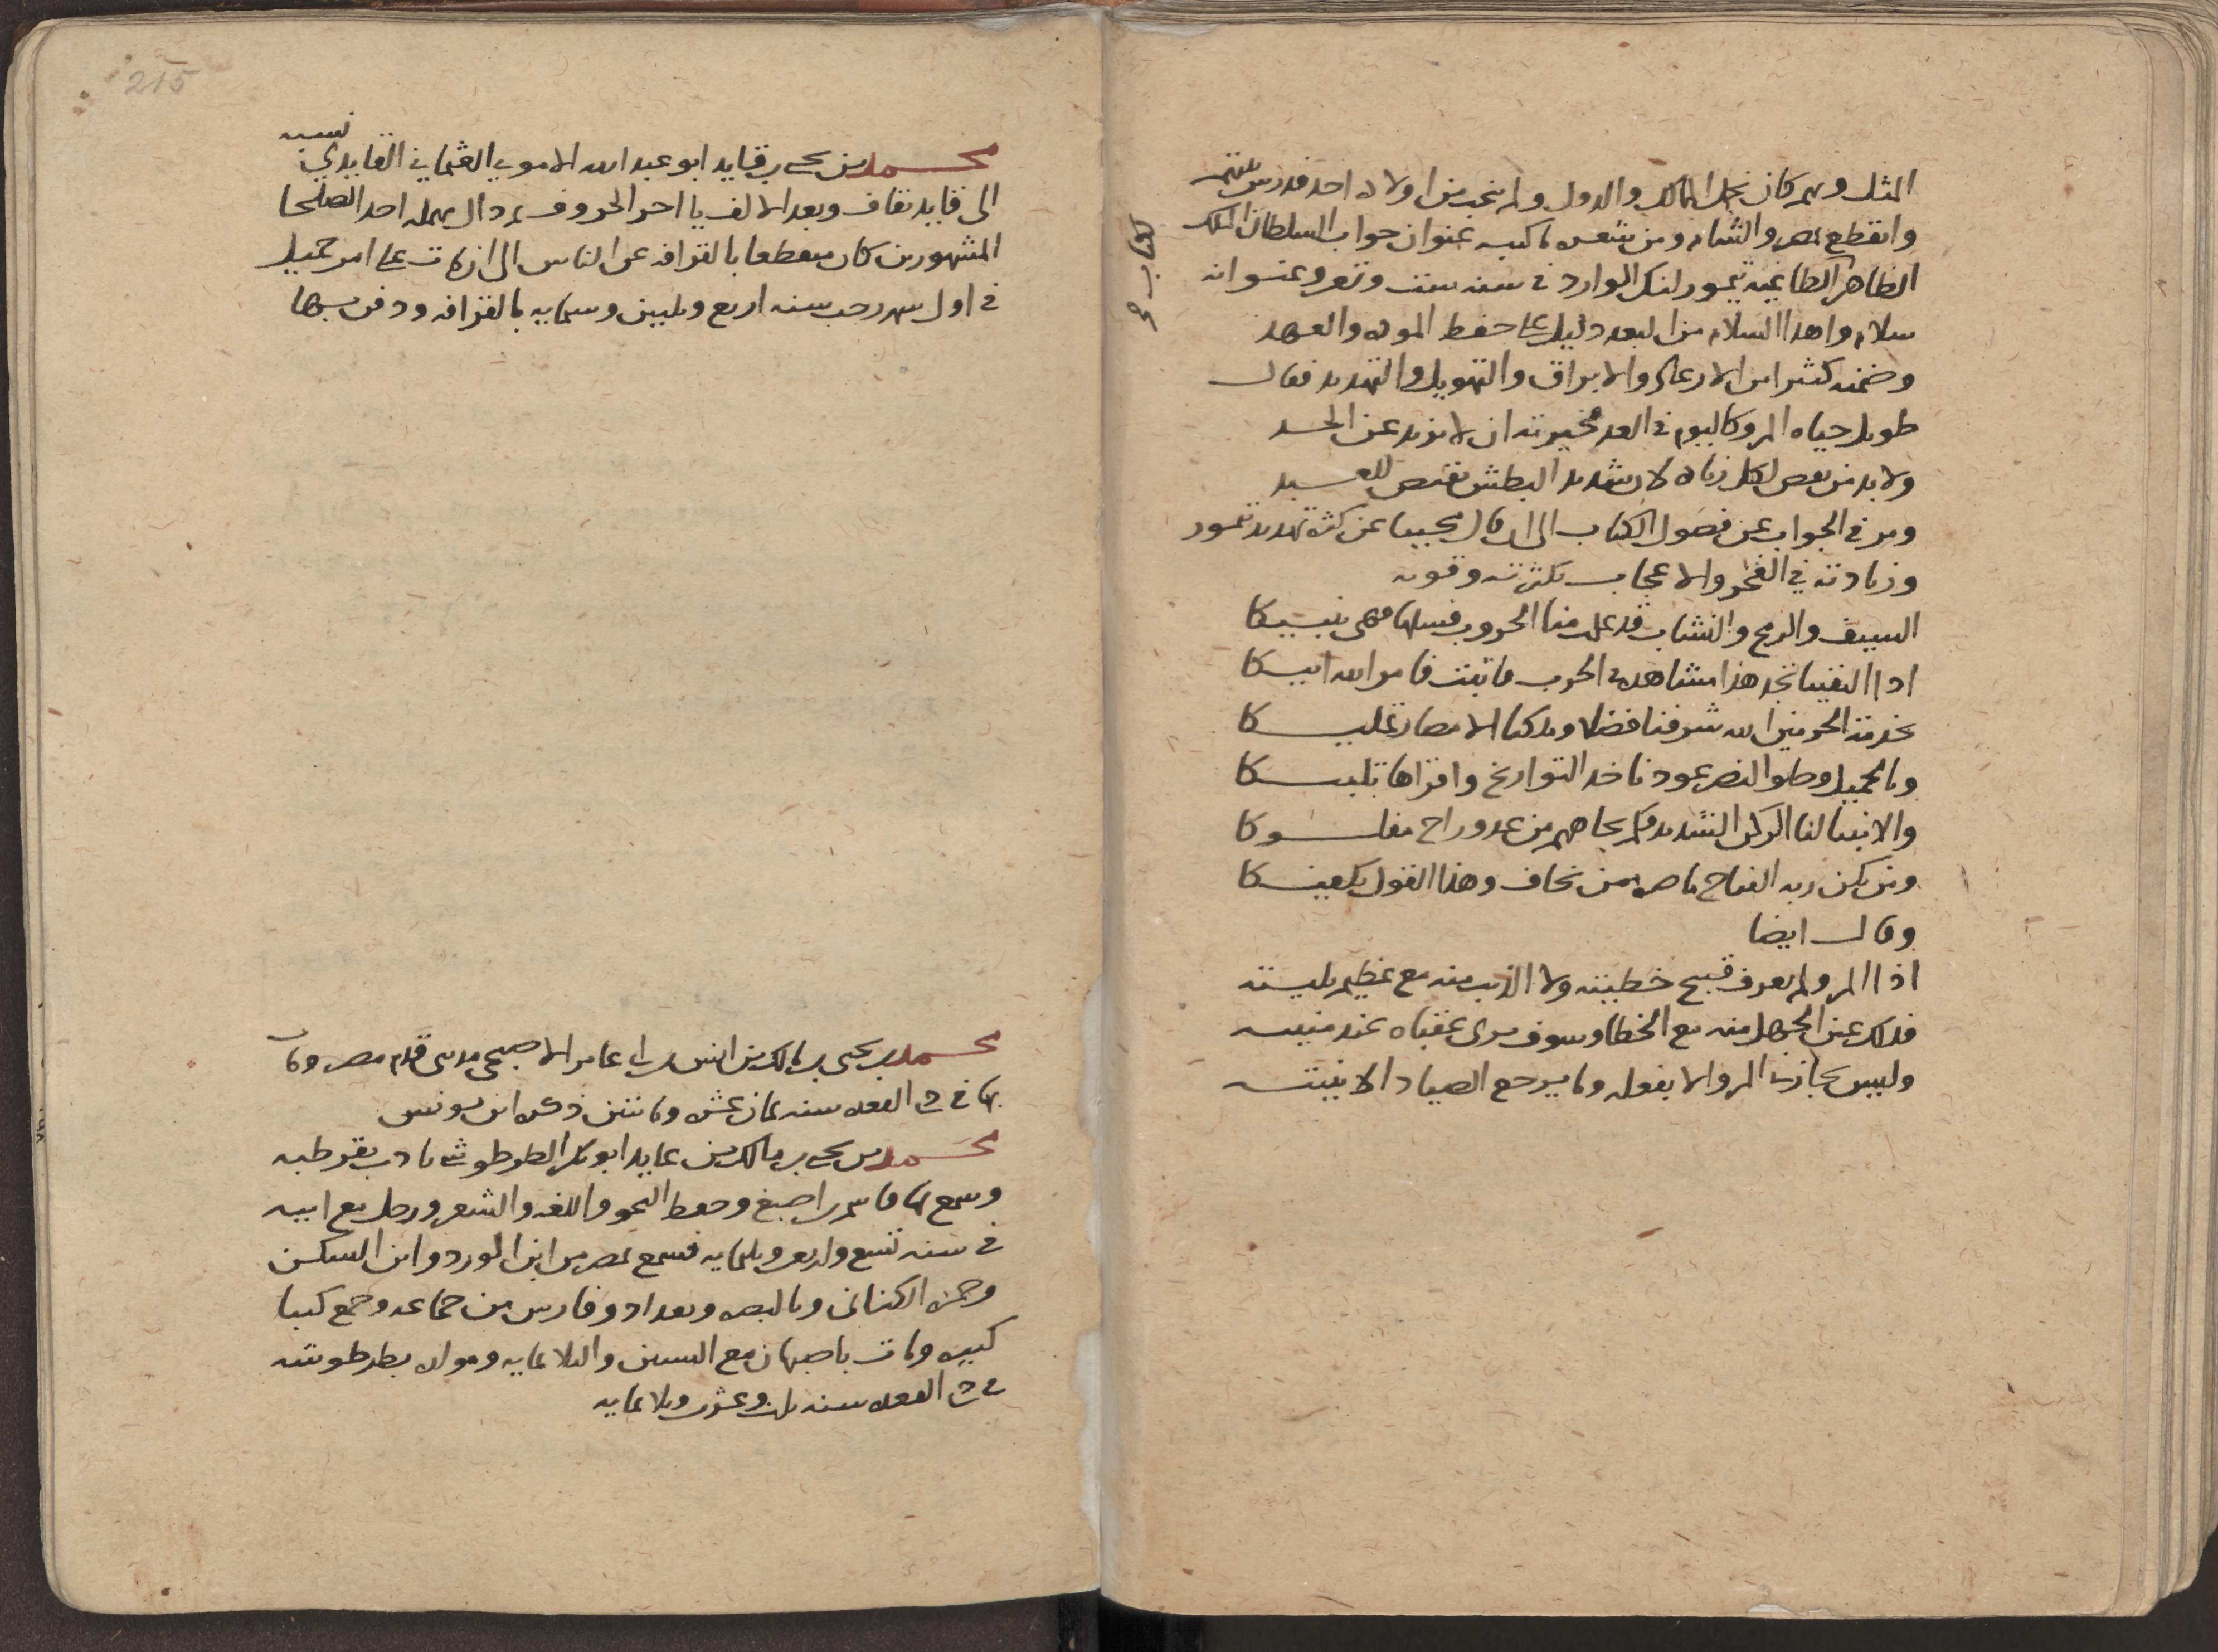 المثل وبهم كان تجمل الممالك والدول ولم ينجب من اولاده احد فدرس بيتهم
وانقطع بمصر والشام ومن شعره ما كتبه عنوان جواب السلطان الملك
كتاب
الظاهر الطاغية تيمور لنك الوارد في سنه ست وتسعين وعنوانه
سلام واهدا السلام من البعد دليل على حفظ الموده والعهد
وضمنه كثيرا من الارعاد والابراق والتهويل والتهديد فقال
طويل حياه المرء كاليوم في العد فخيرته ان لا يزيد عن الحد
ولا بد من نقص لكل زياده لان شديد البطش يقتص للعبد
ومر في الجواب عن فصول الكتاب الى ان قال مجيبا عن كثرة تهديد تيمور
وزيادته في الفخر والاعجاب بكثرته وقوته
السيف والرمح والنشاب قد علمت منا الحروب فسلها فهي تنبيكا
اذا التقينا تجد هذا مشاهدة في الحرب فاثبت فامر الله اتيكا
بخدمة الحرمين الله شرفنا فضلا وملكنا الامصار تمليكا
وبالجميل وحلو النصر عودنا خذ التواريخ واقراها تلبيكا
والانبيا لنا الركن الشديد فكم بجاههم من عدو راح مفلوكا
ومن يكن ربه الفتاح ناصره ممن يخاف وهذا القول يكفيكا
وقال ايضا
اذا المرء لم يعرف قبيح خطيته ولا الذنب منه مع عظيم بليته
فذلك عين الجهل منه مع الخطا وسوف يرى عقباه عند منيته
وليس يجازى المرء الا بفعله وما يرجع الصياد الا بنيته
215
محمد بن يحيى بن قايد ابو عبد الله الاموي العثماني القايدي نسبه
الى قايد بقاف وبعد الالف يا اخر الحروف ثم دال مهمله احد الصلحا
المشهورين كان منقطعا بالقرافه عن الناس الى ان مات على امر جميل
في اول شهر رجب سنه اربع وثلثين وستمايه بالقرافه ودفن بها
محمد بن يحيى بن مالك بن انس بن ابي عامر الاصبحي مدني قدم مصر ومات
بها في ذي القعده سنه ثمان عشره ومائتين ذكره ابن يونس
محمد بن يحيى بن مالك بن عايد ابو بكر الطرطوشي تادب بقرطبه
وسمع بها قاسم بن اصبغ وحفظ النحو واللغه والشعر ورحل مع ابيه
في سنه تسع واربعين وثلثمايه فسمع بمصر من ابن الورد وابن السكن
وحمزه الكناني وبالبصره وبغداد وفارس من جماعه وجمع كتبا
كثيره ومات باصبهان مع الستين والثلاثمايه ومولده بطرطوشه
في ذي القعده سنه ثلث وعشرين وثلاثمايه